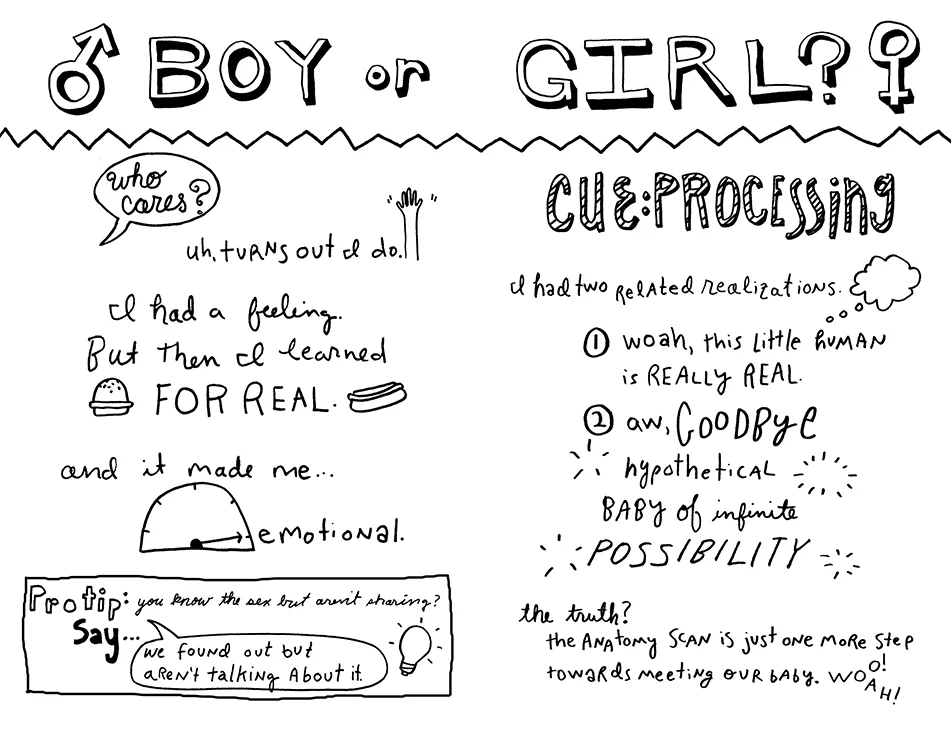 BOY or GIRL?
who
cares?
uh, turns out I do.
I had a feeling.
But then I learned
FOR REAL.
and it made me...
emotional.
Protip: you know the sex but aren't sharing?
Say...
we found out but
aren't talking About it.
CUE: PROCESSING
I had two related realizations.
1 woah, this little human
is REALLY REAL.
2 aw, GOODBYE
hypothetical
BABY of infinite
POSSIBILITY
the truth?
the Anatomy Scan is just one more step
towards meeting our baby. WOOAH!